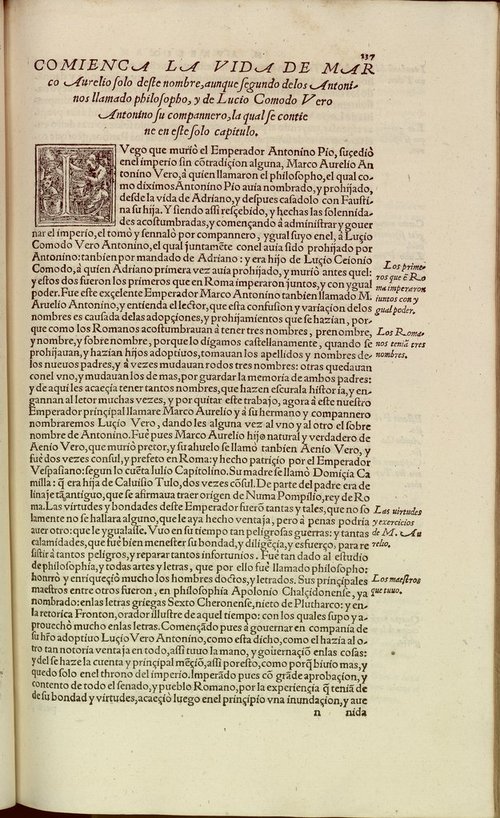 137
COMIENCA LA VIDA DE MAR
co Aurelio solo deste nombre, aunque segundo delos Antoni-
nos llamado philosopho, y de Lucio Comodo Vero
Antonino su compannero, la qual se contie
ne en este solo capitulo.
LVego que murio el Emperador Antonino Pio, suçedio
enel imperio sin cõtradiçion alguna, Marco Aurelio An
tonino Vero, à quien llamaron el philosopho, el qual co-
mo diximos Antonino Pio auia nombrado, y prohijado,
desde la vida de Adriano, y despues casadolo con Fausti-
na su hija. Y siendo assi resçebido, y hechas las solennida-
des acostumbradas, y començando à administrar y gouer
nar el imperio, el tomò y sennalò por compannero, y gual suyo enel, à Luçio
Comodo Vero Antonino, el qual juntamẽte conel auia sido prohijado por
Antonino: tanbien por mandado de Adriano: y era hijo de Luçio Ceionio
Comodo, à quien Adriano primera vez auia prohijado, y muriò antes quel:
y estos dos fueron los primeros que en Roma imperaron juntos, y con ygual
poder. Fue este exçelente Emperador Marco Antonino tanbien llamado M.
Aruelio Antonino, y entienda el lector, que esta confusion y variaçion delos
nombres es causada delas adopçiones, y prohijamientos que se hazian, por-
que como los Romanos acostumbrauan à tener tres nombres, prenombre,
y nombre, y sobre nombre, porque lo digamos castellanamente, quando se
prohijauan, y hazian hijos adoptiuos, tomauan los apellidos y nombres de-
los nueuos padres, y à vezes mudauan todos tres nombres: otras quedauan
conel vno, y mudauan los de mas, por guardar la memoria de ambos padres:
y de aqui les acaeçia tener tantos nombres, que hazen escura la historia, y en-
gannan al letor muchas vezes, y por quitar este trabajo, agora à este nuestro
Emperador prinçipal llamare Marco Aurelio y à su hermano y compannero
nombraremos Luçio Vero, dando les alguna vez al vno y al otro el sobre
nombre de Antonino. Fue pues Marco Aurelio hijo natural y verdadero de
Aenio Vero, que muriò pretor, y su ahuelo se llamò tanbien Aenio Vero, y
fue dos vezes consul, y prefeto en Roma y hecho patriçio por el Emperador
Vespasiano: segun lo cuẽta Iulio Capitolino. Su madre se llamò Domiçia Ca
milla: q̃ era hija de Caluisio Tulo, dos vezes cõsul. De parte del padre era de
linaje tã antiguo, que se afirmaua traer origen de Numa Pompilio, rey de Ro
ma. Las virtudes y bondades deste Emperador fuerõ tantas y tales, que no so
lamente no se hallara alguno, que le aya hecho ventaja, pero à penas podria
auer otro: que le ygualasse. Vuo en su tiempo tan peligrosas guerras: y tantas
calamidades, que fue bien menester su bondad, y diligẽçia, y esfuerço, para re
sistir à tantos peligros, y reparar tantos infortunios. Fue tan dado al estudio
de philosophia, y todas artes y letras, que por ello fue llamado philosopho:
honrrò y enriqueçiò mucho los hombres doctos, y letrados. Sus prinçipales
maestros entre otros fueron, en philosophia Apolonio Chalçidonense, ya
nombrado: enlas letras griegas Sexto Cheronense, nieto de Plutharco: y en
la retorica Fronton, orador illustre de aquel tiempo: con los quales supo y a-
prouechò mucho enlas letras. Començado pues à gouernar en compania de
su hrõ adoptiuo Luçio Vero Antonino, como esta dicho, como el hazia al o-
tro tan notoria ventaja en todo, assi tuuo la mano, y gouernaçiõ enlas cosas:
y del se haze la cuenta y prinçipal mẽçiõ, assi por esto, como porq̃ biuio mas, y
quedo solo enel throno del imperio. Imperãdo pues cõ grãde aprobaçion, y
contento de todo el senado, y pueblo Romano, por la experiençia q̃ teniã de
de su bondad y virtudes, acaeçio luego enel prinçipio vna inundaçion, y aue
n nida
Los prime-
ros que ẽ Ro
ma imperaron
juntos con y
gual poder.
Los Roma-
nos teniã tres
nombres.
Las virtudes
y exercicios
de M. Au
relio.
Los maestros
que tuuo.